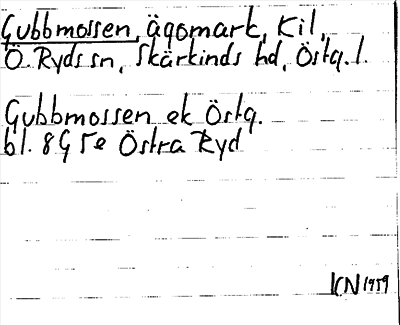 Gubbmossen, ägomark, Kil,
Ö. Ryds sn, Skärkinds hd, Östg. l.
Gubbmossen ek Östg.
bl. 8G 5e Östra Ryd
KN 1959